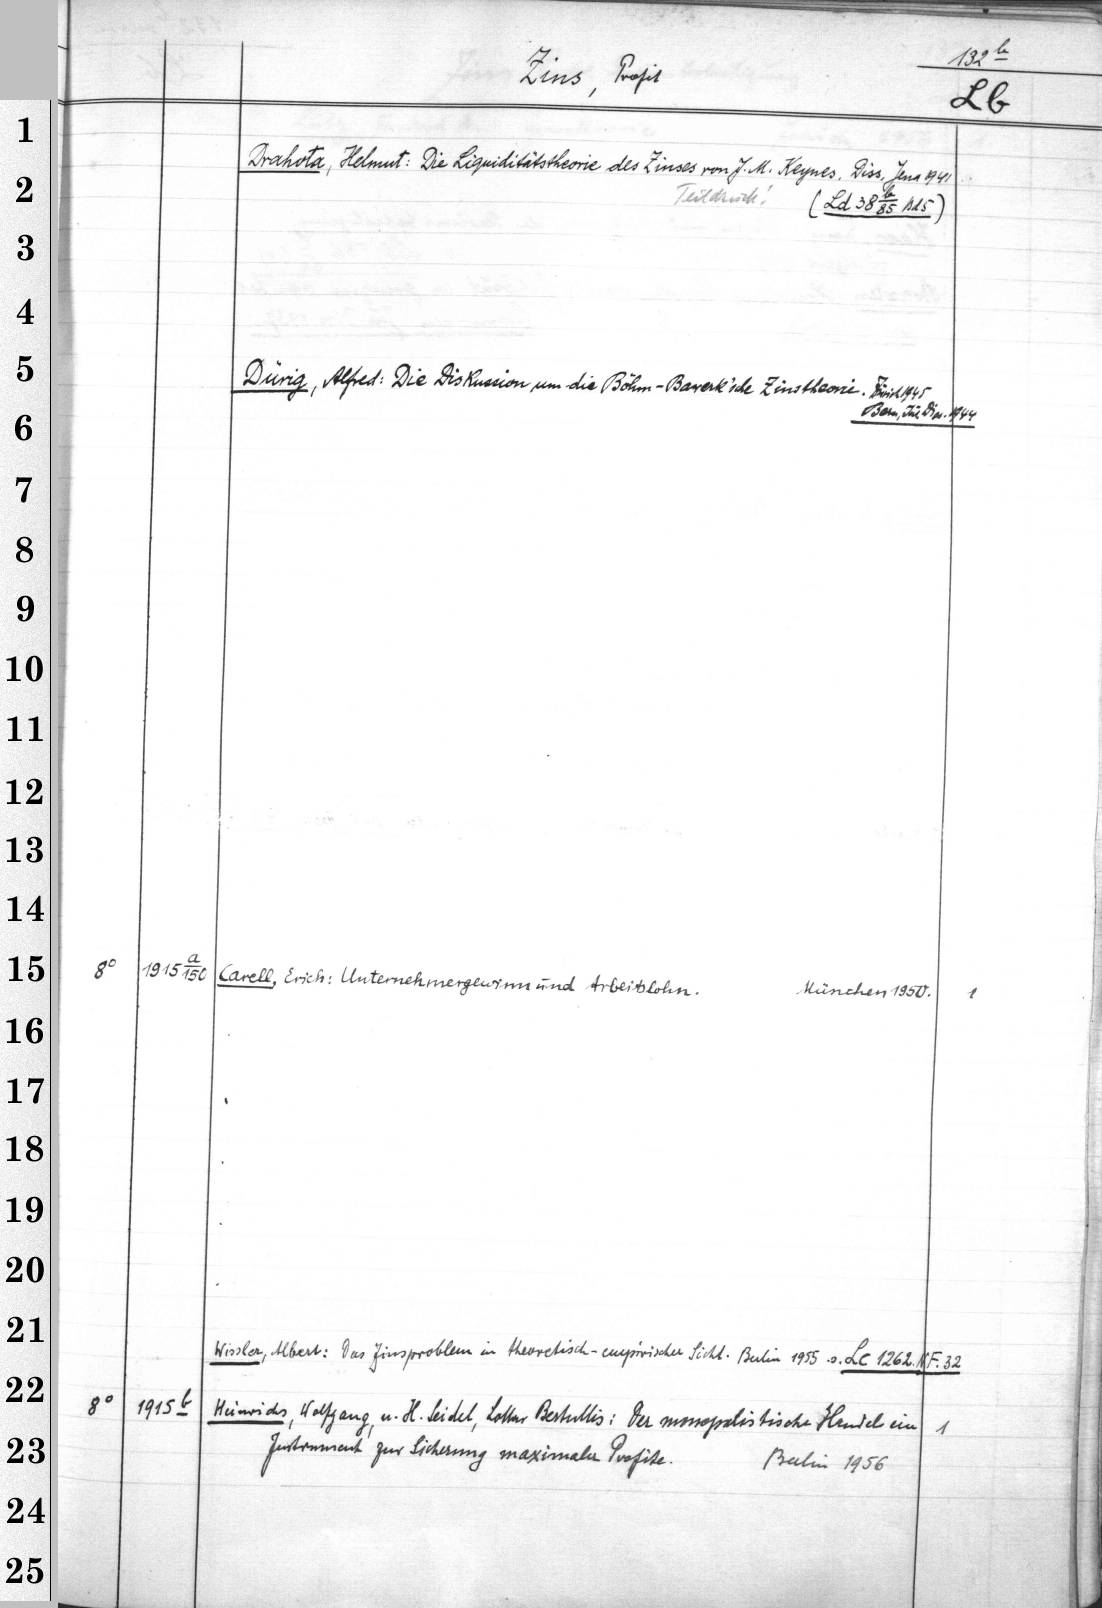 132 b
Zins, Profit
Lb
1
Drahota, Helmut: Die Liquiditätstheorie des Zinses von J. M. Keynes. Diss. Jena 1941
2
Teildruck! (Ld 38 b/85 Bd5)
3
4
5
Dürig, Alfred: Die Diskussion um die Böhm-Bawerk'sche Zinstheorie. Zürich 1945
6
Bern, Jur. Diss. 1944
7
8
9
10
11
12
13
14
15
8° 1915 a/150 Carell, Erich: Unternehmergewinn und Arbeitslohn. München 1950. 1
16
17
18
19
20
21
Wissler, Albert: Das Zinsproblem in theoretisch-empirischer Sicht. Berlin 1955 s. Lc 1262. NF. 32
22
8° 1915 b Heinrichs, Wolfgang, u. H. Seidel, Lothar Bertullis: Der monopolistische Handel ein 1
23
Instrument zur Sicherung maximaler Profite. Berlin 1956
24
25